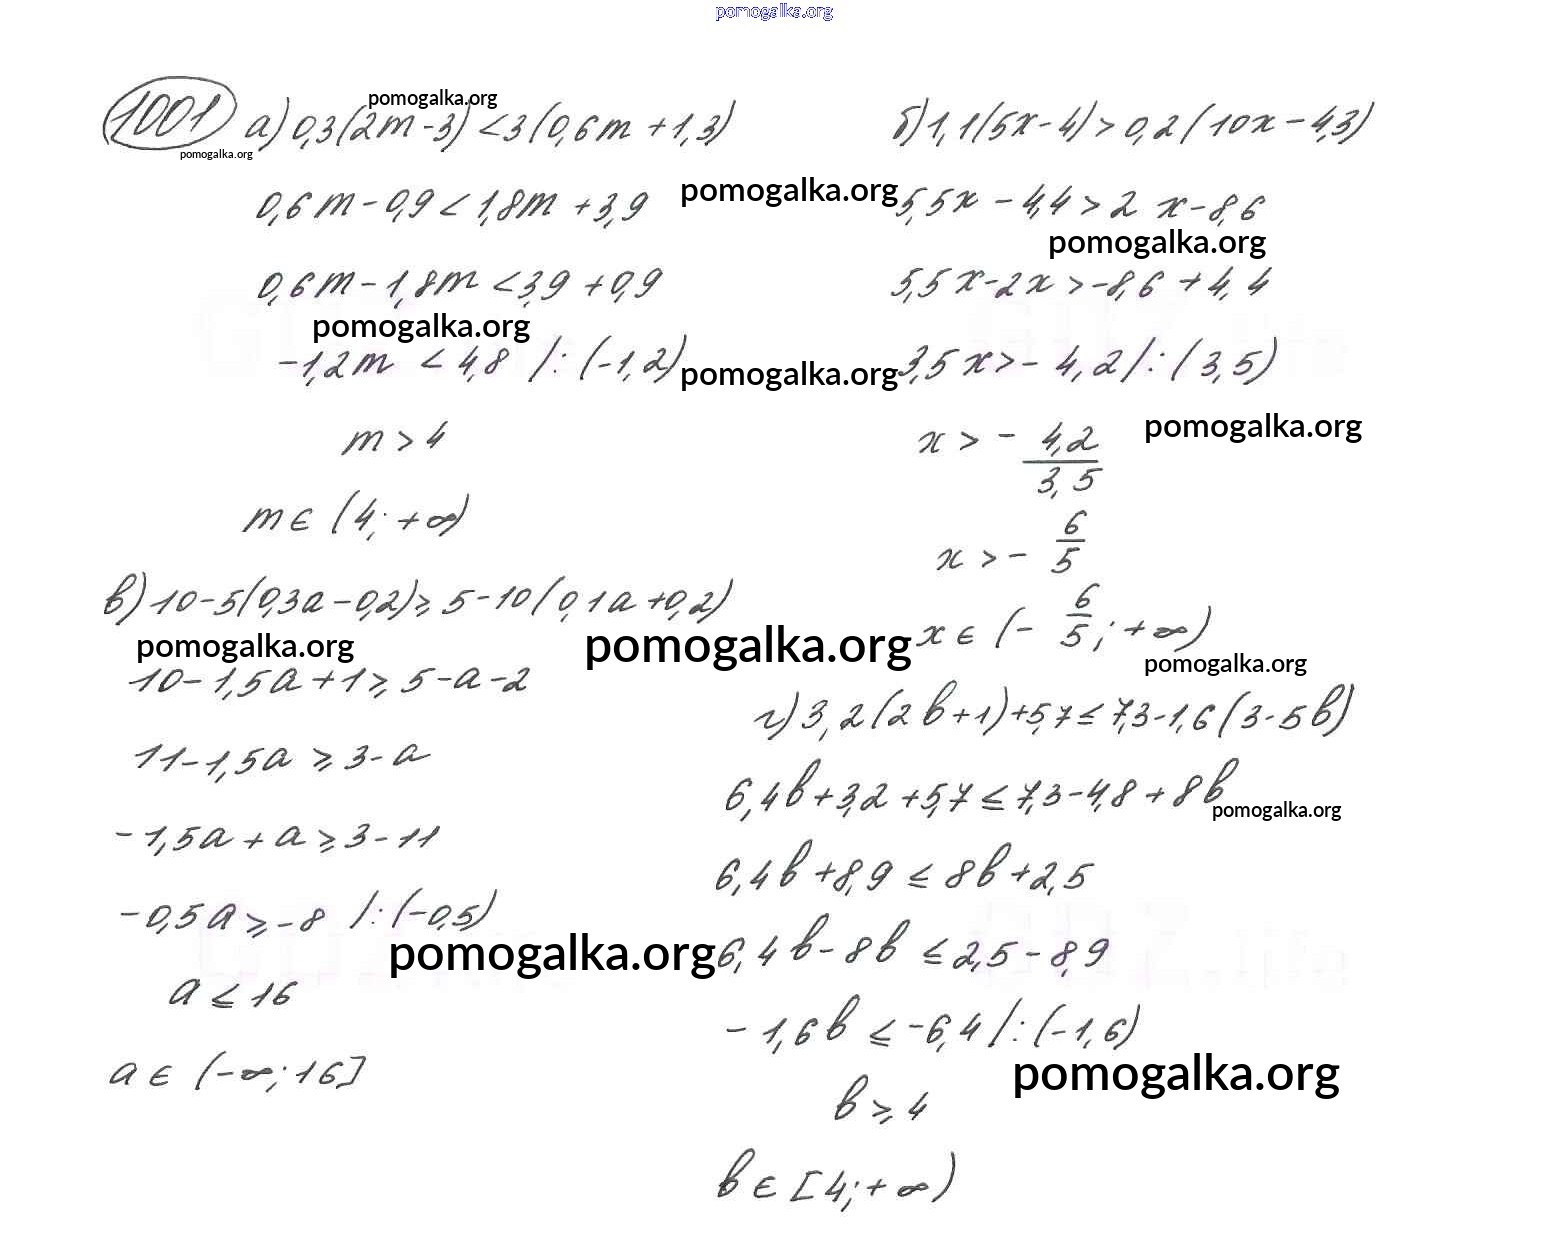 pomogalka.org
1001 а) 0,3(2m-3)<3(0,6m+1,3)
pomogalka.org
pomogalka.org
0,6m-0,9<1,8m+3,9
pomogalka.org
0,6m-1,8m<3,9+0,9
pomogalka.org
-1,2m<4,8 /:(-1,2)
pomogalka.org
m>4
m∈(4;+∞)
б) 1,1(5x-4)>0,2(10x-4,3)
5,5x-4,4>2x-8,6
pomogalka.org
5,5x-2x>-8,6+4,4
3,5x>-4,2/:(3,5)
pomogalka.org
x>-4,2/3,5
x>-6/5
x∈(-6/5;+∞)
pomogalka.org
в) 10-5(0,3a-0,2)⩾5-10(0,1a+0,2)
pomogalka.org
pomogalka.org
10-1,5a+1⩾5-a-2
11-1,5a⩾3-a
-1,5a+a⩾3-11
-0,5a⩾-8 /:(-0,5)
pomogalka.org
a⩽16
a∈(-∞;16]
г) 3,2(2b+1)+5,7⩽7,3-1,6(3-5b)
6,4b+3,2+5,7⩽7,3-4,8+8b
pomogalka.org
6,4b+8,9⩽8b+2,5
6,4b-8b⩽2,5-8,9
-1,6b⩽-6,4/:(-1,6)
pomogalka.org
b⩾4
b∈[4;+∞)